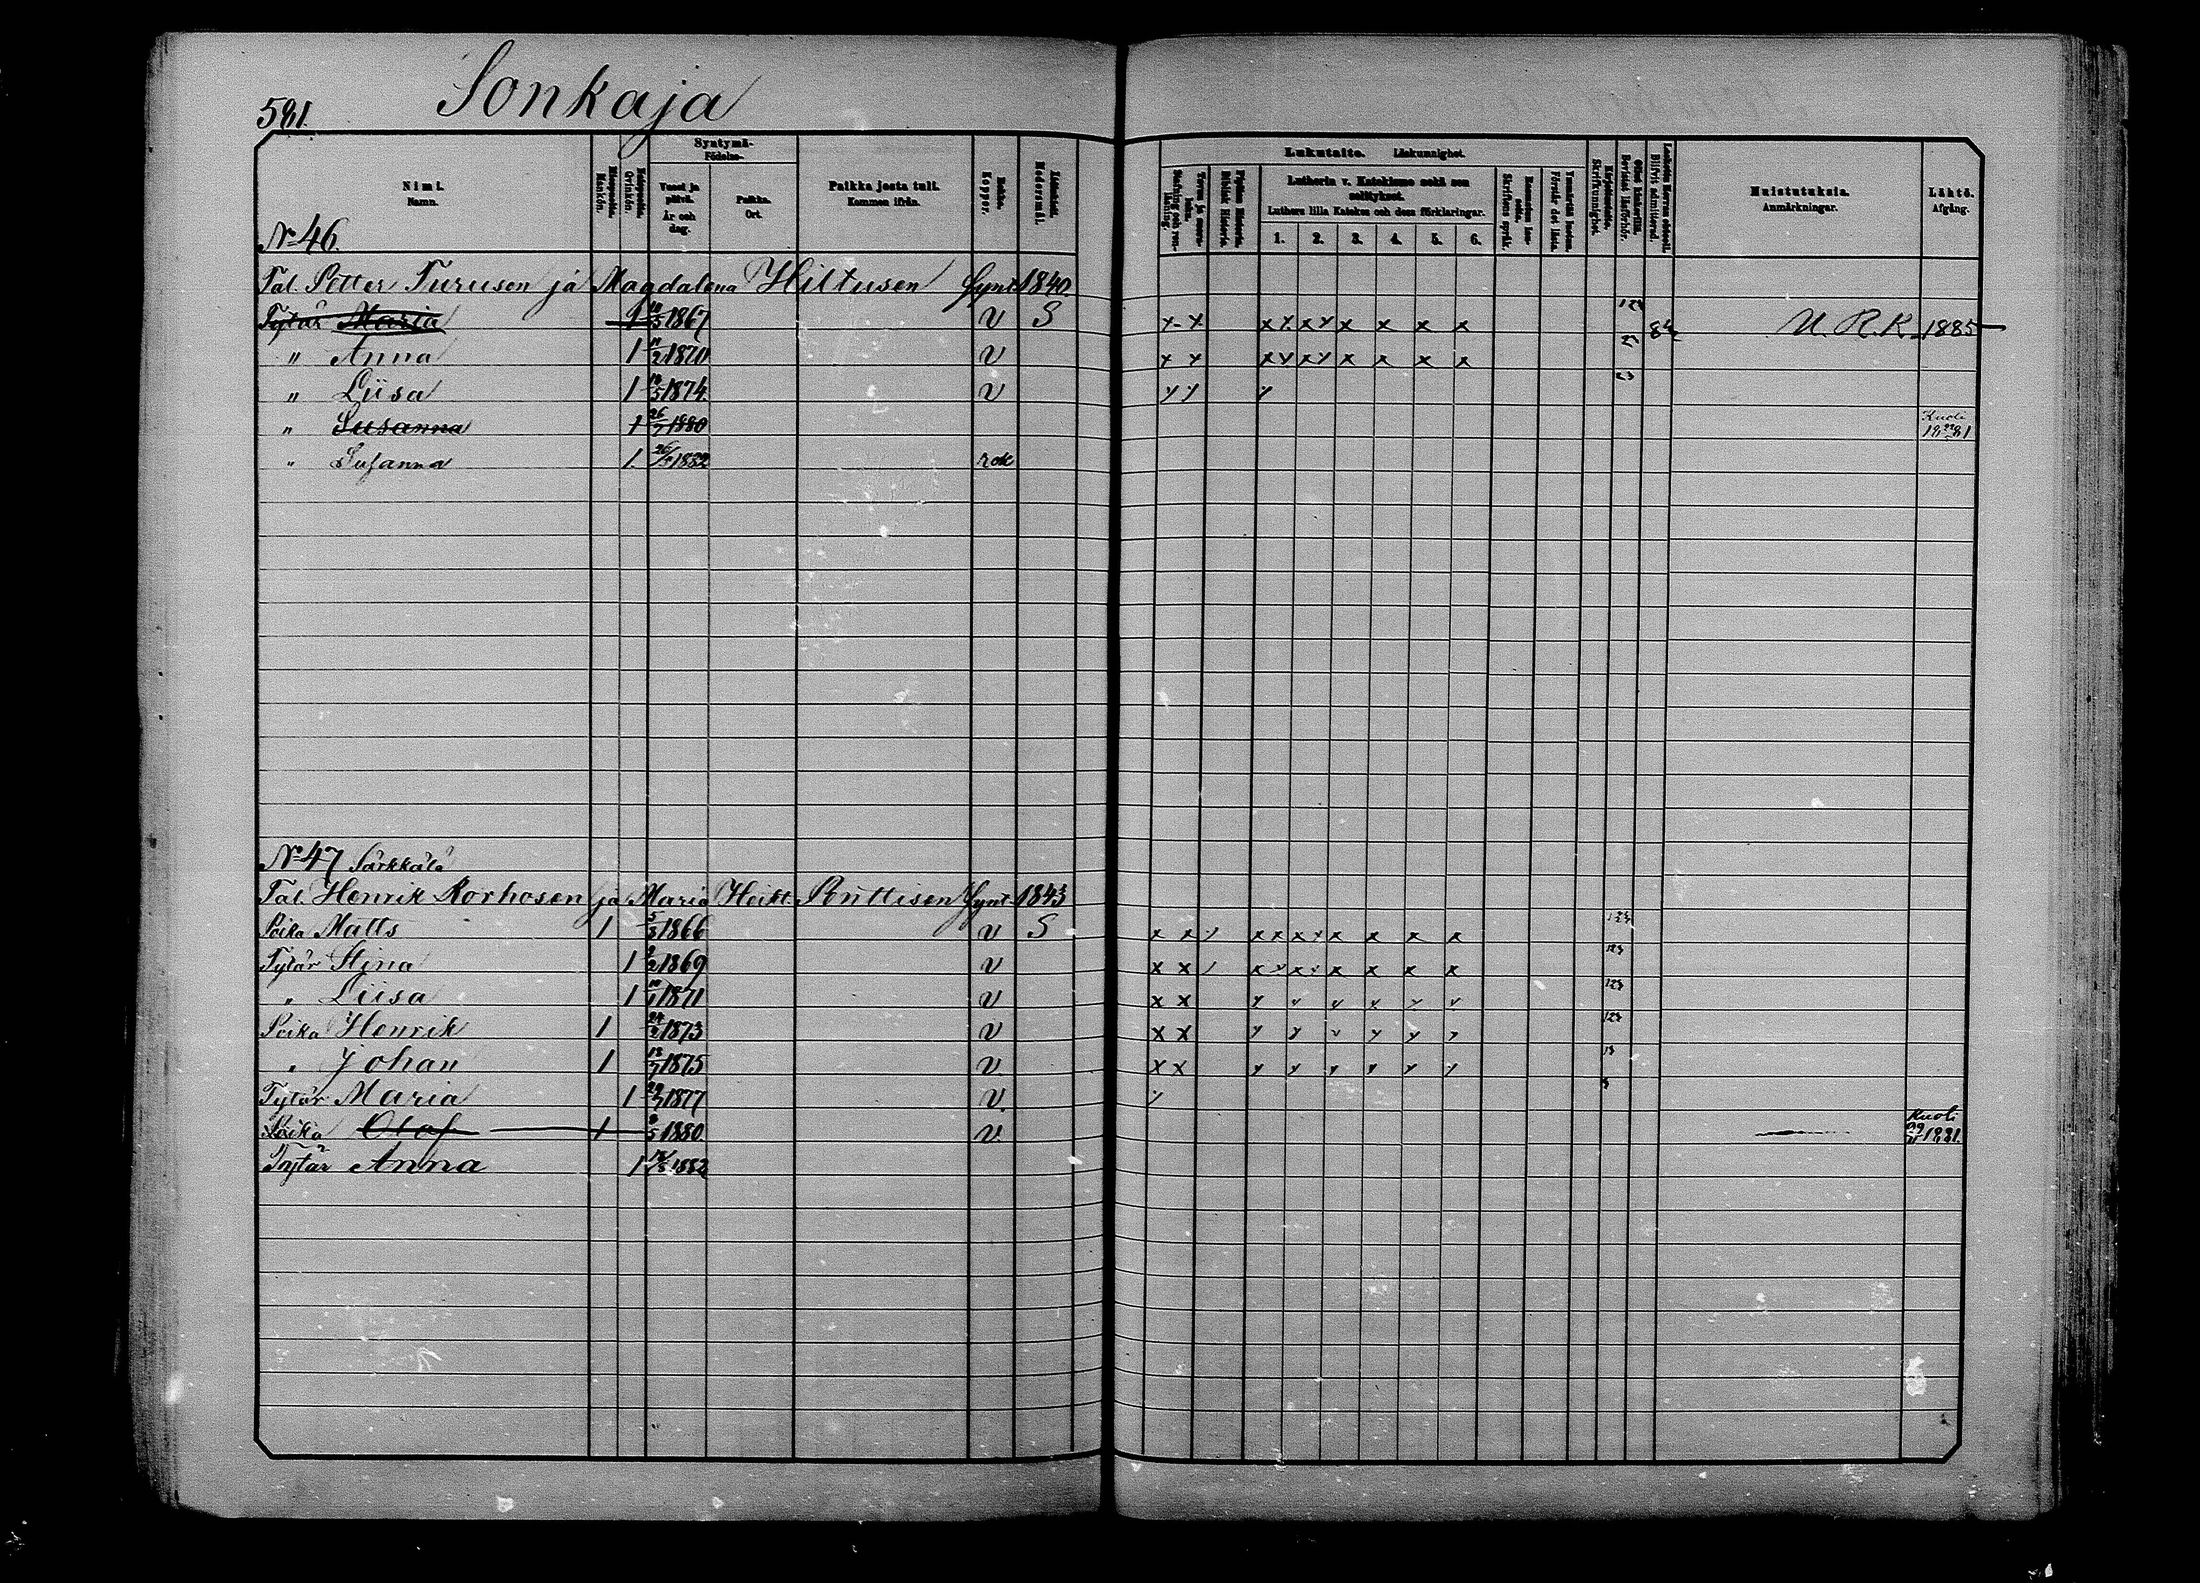 581. Sonkaja
Nimi. Namn. Miespuolia. Mankön. Vaimopuolia. Qvinkön. Syntymä- Födelse- Vuosi ja päivä. År och dag. Paikka. Ort. Paikka josta tuli. Kommen ifrån. Rokko. Koppor. Modersmål. Lukutaito. Läskunnighet. Lutherin v. Katekismo sekä sen selitykset. Luthers lilla Katekes och dess förklaringar. 1. 2. 3. 4. 5. 6. Muistutuksia. Anmärkningar. Lähtö. Afgång.
No 46.
Tal. Petter Turusen ja Magdalena Hiltusen Synt. 1840.
Tytär Maria 1 1867 v S x x x x x x x x x x U. R. K. 1885
" Anna 1 11/2 1871 v x x x x x x x x x x
" Liisa 1 1874. v
" Susanna 1 26/7 1880 Kuoli 1881
" Susanna 1. 1882 rok
No 47 Särkkälä
Tal. Henrik Korhosen ja Maria Heikt. Puttisen Synt. 1843
Poika Matts 1 5/3 1866 v S x x x x x x x x x x
Tytär Stina 1 1869 v x x x x x x x x x
" Liisa 1 1871 v x x
Poika Henrik 1 24/2 1873 v x x
" Johan 1 13/7 1875 v x x
Tytär Maria 1 1877 v.
Poika Olof 1 1880 v Kuoli 1881.
Tytär Anna 1 1882